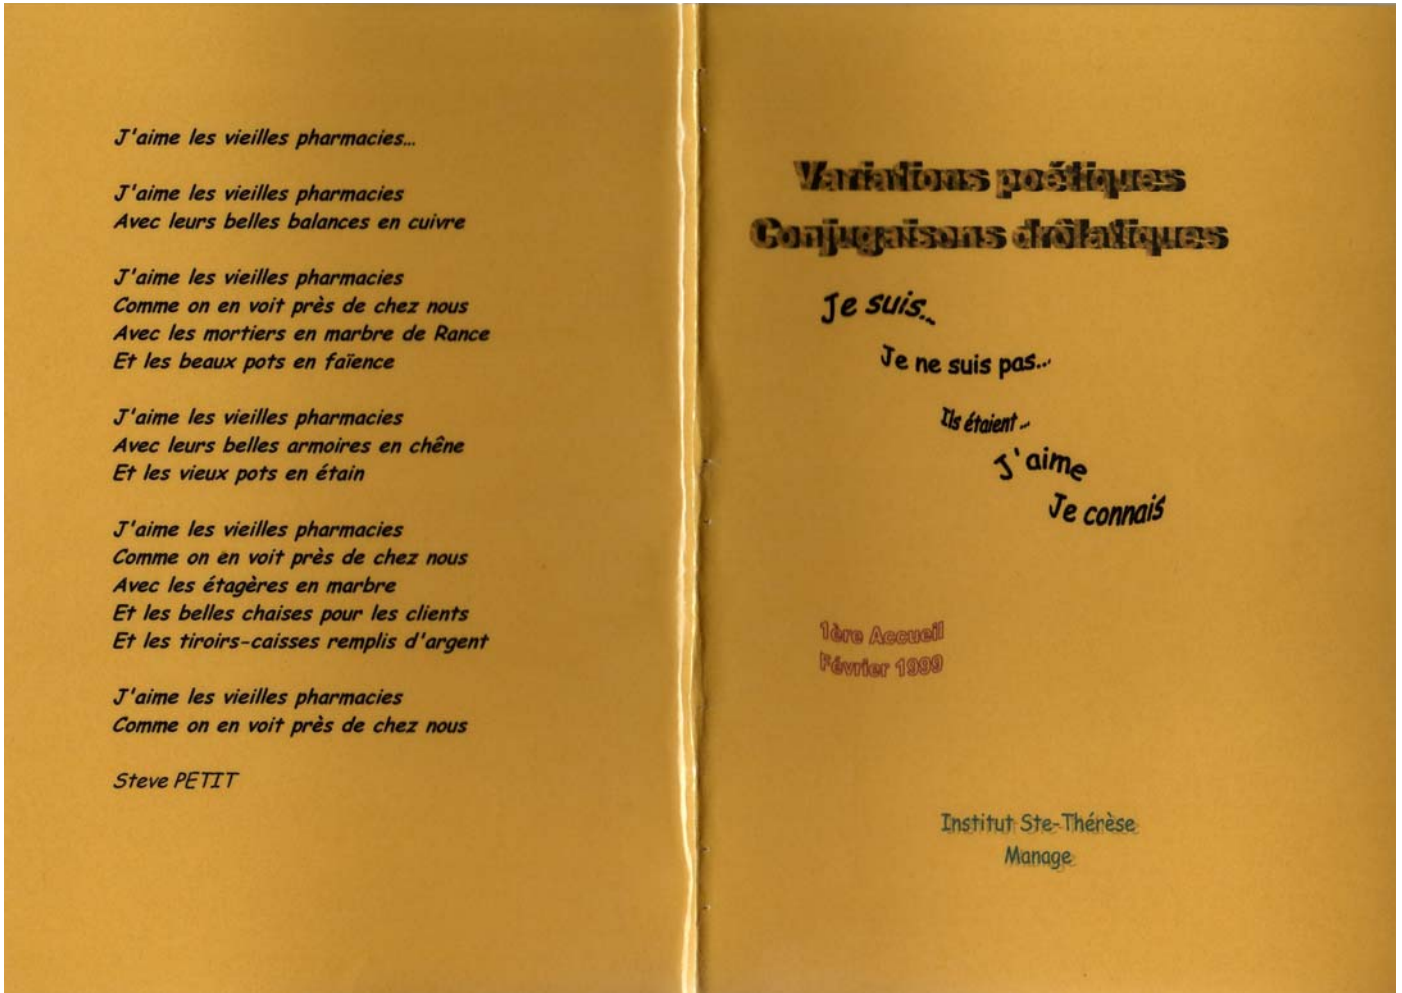 J'aime les vieilles pharmacies...
J'aime les vieilles pharmacies
Avec leurs belles balances en cuivre
J'aime les vieilles pharmacies
Comme on en voit près de chez nous
Avec les mortiers en marbre de Rance
Et les beaux pots en faïence
J'aime les vieilles pharmacies
Avec leurs belles armoires en chêne
Et les vieux pots en étain
J'aime les vieilles pharmacies
Comme on en voit près de chez nous
Avec les étagères en marbre
Et les belles chaises pour les clients
Et les tiroirs-caisses remplis d'argent
J'aime les vieilles pharmacies
Comme on en voit près de chez nous
Steve PETIT
Variations poétiques
Conjugaisons drôlatiques
Je suis...
Je ne suis pas...
Ils étaient ...
J'aime
Je connais
1ère Accueil
Février 1999
Institut Ste-Thérèse
Manage